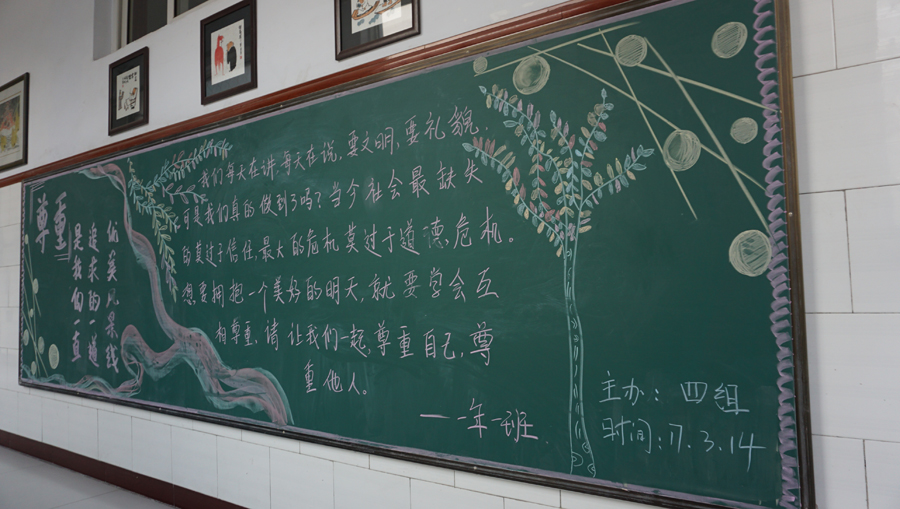 尊重
是我们一直
追求的一道
优美风景线
我们每天在讲,每天在说,要文明,要礼貌,
可是我们真的做到了吗?当今社会最缺失
的莫过于信任,最大的危机莫过于道德危机。
想要拥抱一个美好的明天,就要学会互
相尊重,请让我们一起,尊重自己,尊
重他人。
一一年一班
主办:四组
时间:17.3.14